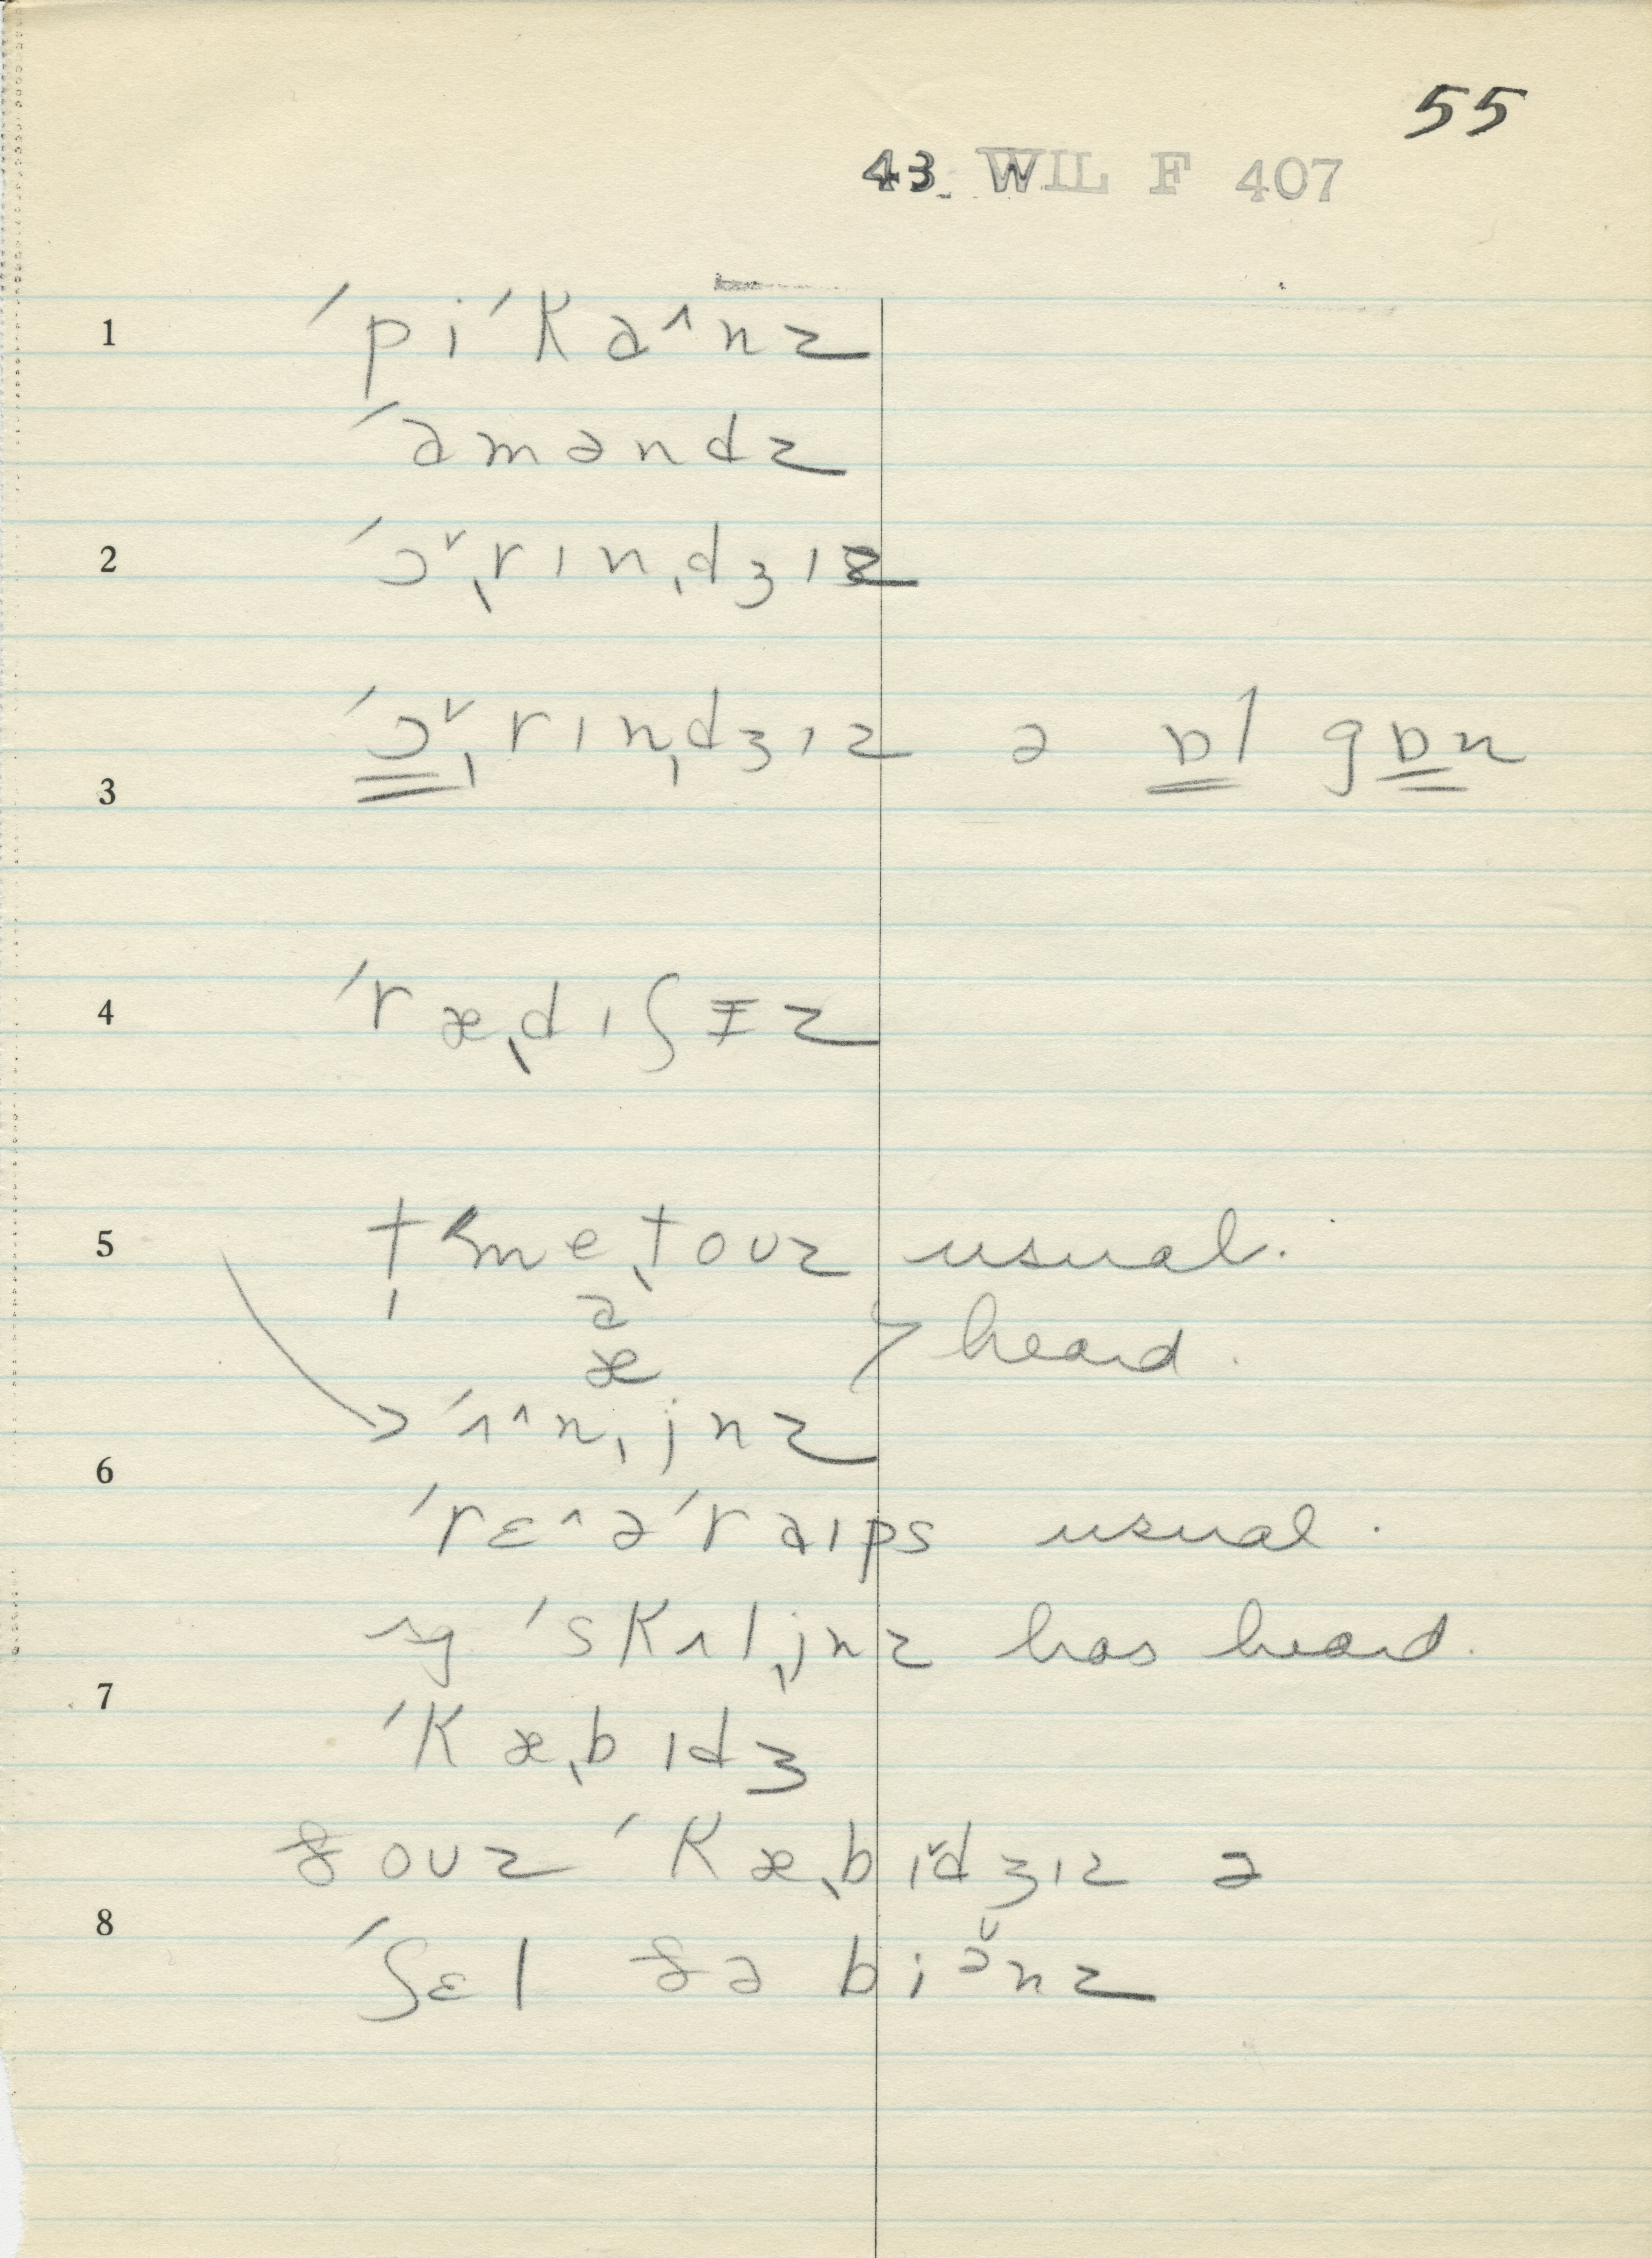 55
43 WIL F 407
1 ˈpiˈkɑ^nz
ˈɑməndz
2 ˈɔˇˌrɪnˌdʒɪz
3 ˈɔˇˌrɪnˌdʒɪz ə ɒl gɒn
4 ˈræˌdɪʃɪz
5 tˈmeˌtoʊz usual.
ɑ
æ } heard.
→ ˈʌ^nˌjnz
6 ˈrɛ^əˈrɑɪps usual.
sg ˈskʌlˌjnz has heard.
7 ˈkæˌbɪdʒ
ðoʊz ˈkæˌbɪˇdʒɪz ə
8 ˈʃɛl ðə biə̆nz